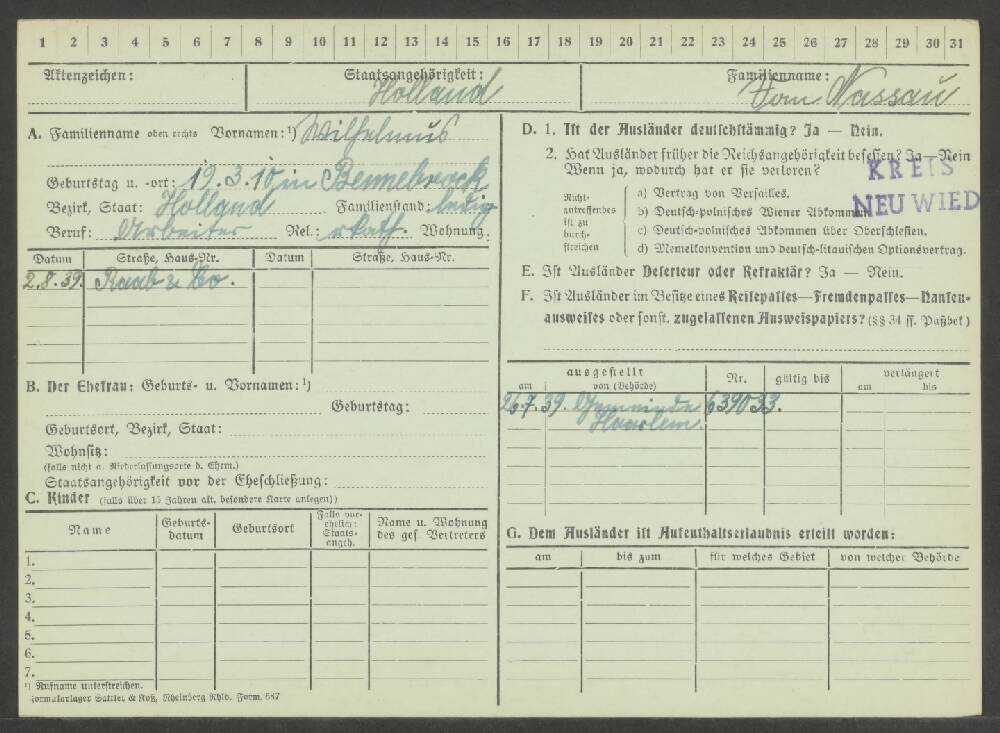 1 2 3 4 5 6 7 8 9 10 11 12 13 14 15 16 17 18 19 20 21 22 23 24 25 26 27 28 29 30 31
Aktenzeichen:
Staatsangehörigkeit:
Holland
Familienname:
Vom Nassau
A. Familienname oben rechts Vornamen:¹) Wilhelmus
Geburtstag u. -ort: 19.3.10 in Bennebroek
Bezirk, Staat: Holland Familienstand: ledig
Beruf: Arbeiter Rel.: rkath. Wohnung:
Datum Straße, Haus-Nr. Datum Straße, Haus-Nr.
2.8.39. Raab & Co.
B. Der Ehefrau: Geburts- u. Vornamen:¹)
Geburtstag:
Geburtsort, Bezirk, Staat:
Wohnsitz:
(falls nicht a. Niederlassungsorte d. Ehem.)
Staatsangehörigkeit vor der Eheschließung:
C. Kinder (falls über 15 Jahren alt, besondere Karte anlegen))
Name Geburts-datum Geburtsort Falls vor-ehelich: Staats-angeh. Name u. Wohnung des ges. Vertreters
1.
2.
3.
4.
5.
6.
7.
¹) Rufname unterstreichen.
Formularlager Sattler & Koß, Rheinberg Rhld. Form. 687
D. 1. Ist der Ausländer deutschstämmig? Ja — Nein.
2. Hat Ausländer früher die Reichsangehörigkeit besessen? Ja—Nein
Wenn ja, wodurch hat er sie verloren?
KREIS
NEUWIED
Nicht-
zutreffendes
ist zu
durch-
streichen
a) Vertrag von Versailles.
b) Deutsch-polnisches Wiener Abkommen.
c) Deutsch-polnisches Abkommen über Oberschlesien.
d) Memelkonvention und deutsch-litauischen Optionsvertrag.
E. Ist Ausländer Deserteur oder Refraktär? Ja — Nein.
F. Ist Ausländer im Besitze eines Reisepasses—Fremdenpasses—Nansen-
ausweises oder sonst. zugelassenen Ausweispapiers? (§§ 34 ff. Paßbek)
ausgestellt Nr. gültig bis verlängert
am von (Behörde) am bis
26.7.39. Gemeinde 639033.
Haarlem.
G. Dem Ausländer ist Aufenthaltserlaubnis erteilt worden:
am bis zum für welches Gebiet von welcher Behörde